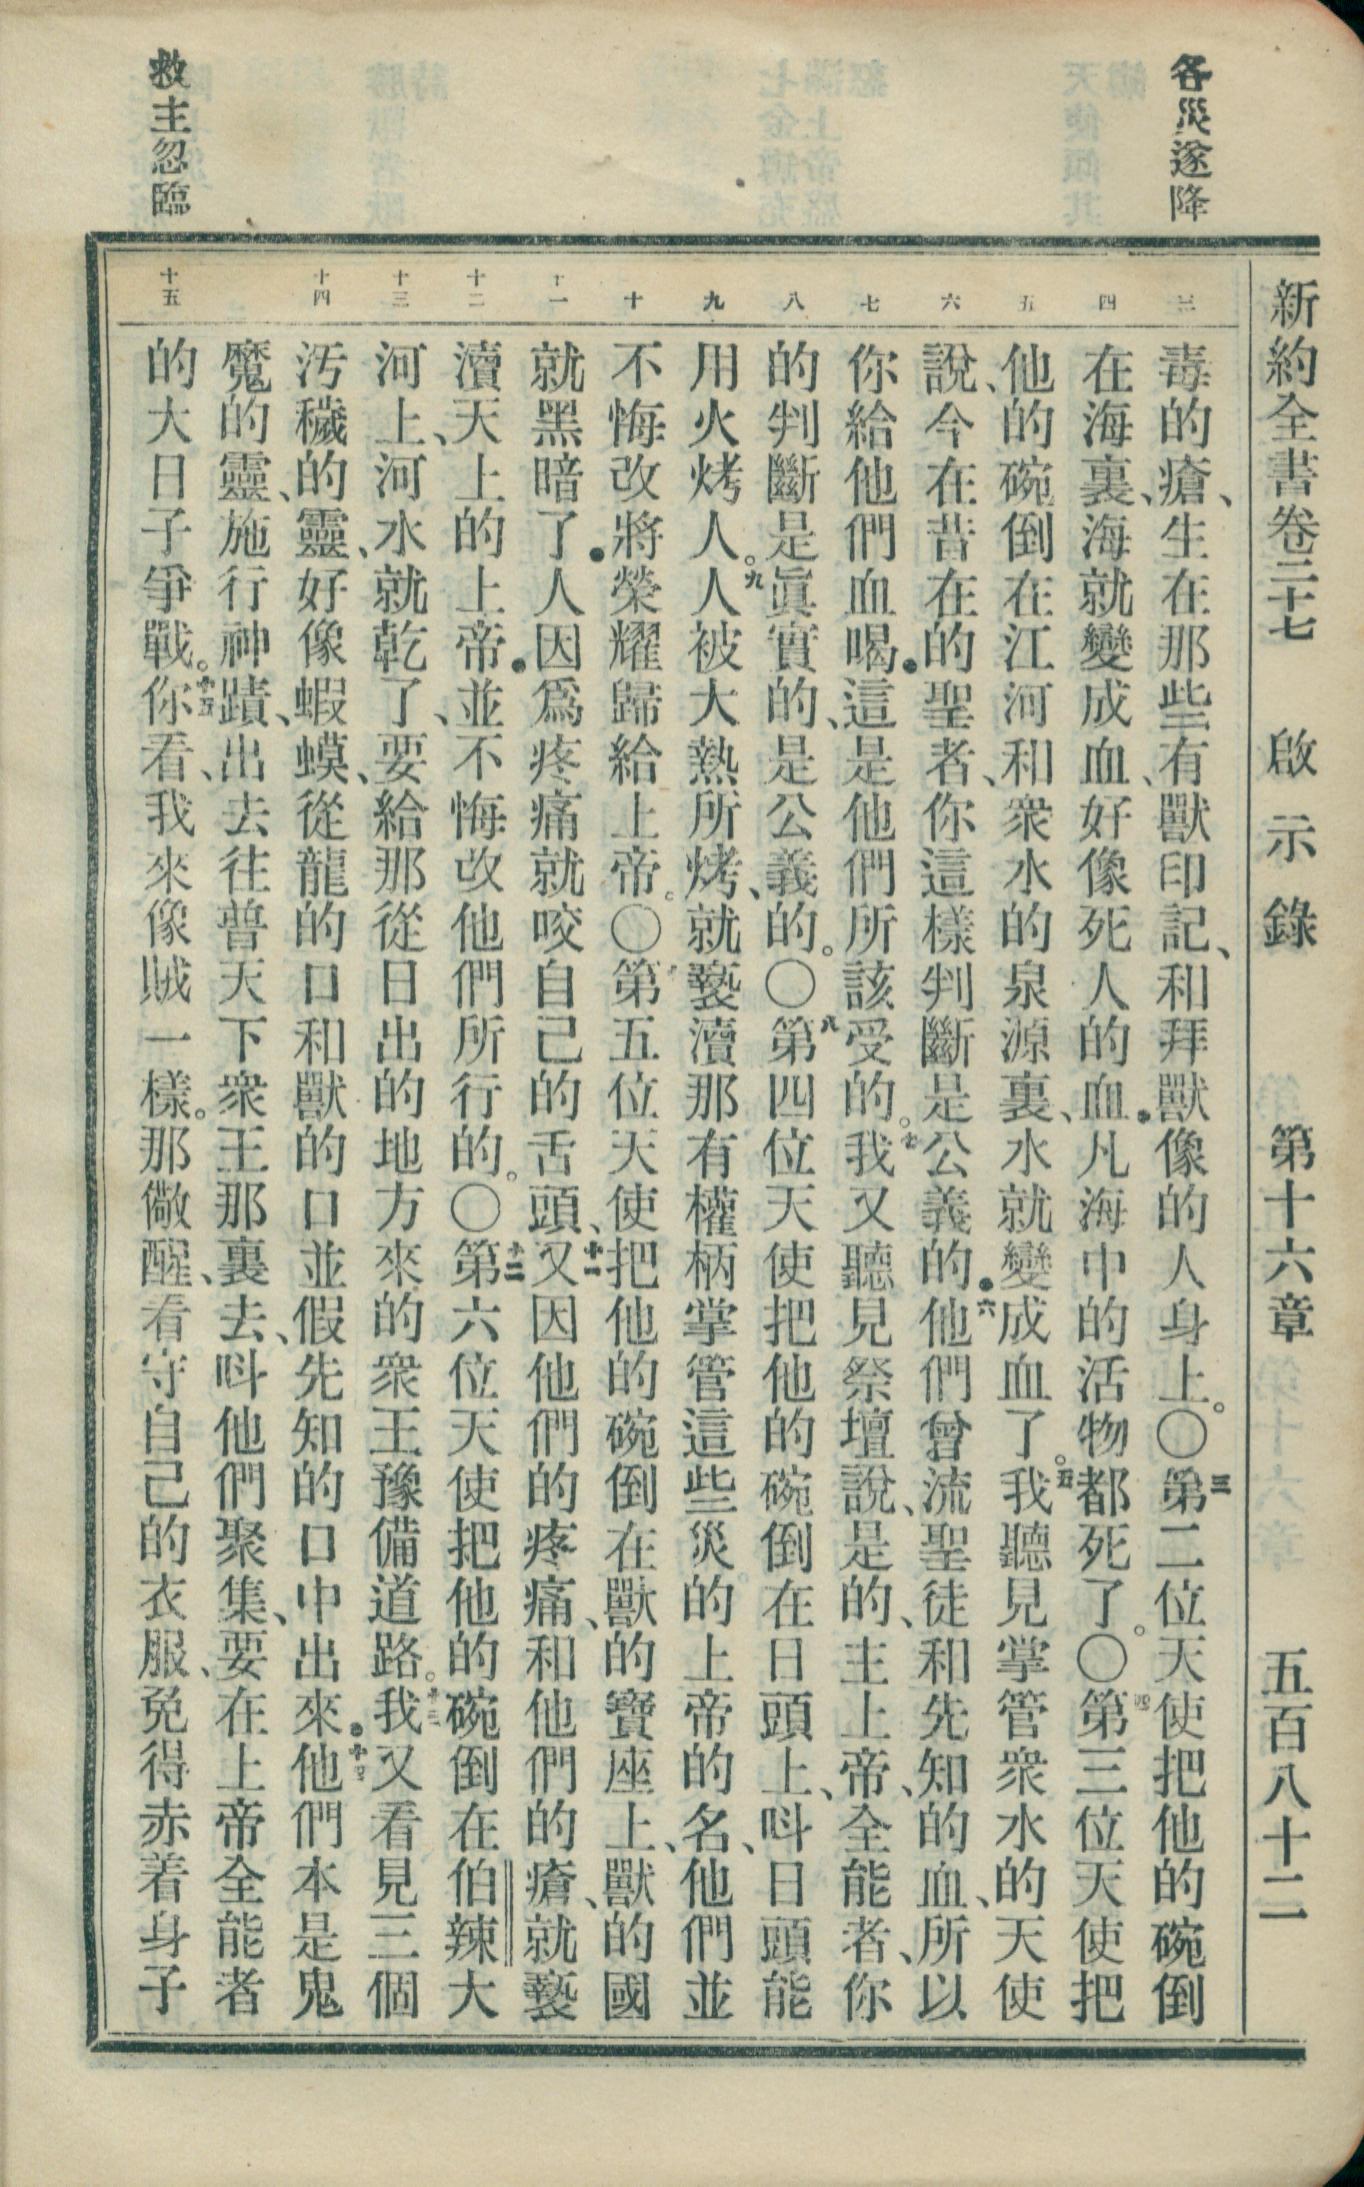 各災遂降
救主忽臨
新約全書卷二十七 啟示錄 第十六章 五百八十二
三 四 五 六 七 八 九 十 十一 十二 十三 十四 十五
毒的瘡、生在那些有獸印記、和拜獸像的人身上。〇三第二位天使把他的碗倒
在海裏、海就變成血、好像死人的血●凡海中的活物都死了。〇四第三位天使把
他的碗倒在江河和衆水的泉源裏、水就變成血了。五我聽見掌管衆水的天使
說、今在昔在的聖者、你這樣判斷是公義的●六他們曾流聖徒和先知的血、所以
你給他們血喝●這是他們所該受的。七我又聽見祭壇說、是的、主上帝、全能者、你
的判斷是眞實的、是公義的。〇八第四位天使把他的碗倒在日頭上、呌日頭能
用火烤人。九人被大熱所烤、就褻瀆那有權柄掌管這些災的上帝的名、他們並
不悔改將榮耀歸給上帝。〇十第五位天使把他的碗倒在獸的寶座上、獸的國
就黑暗了●人因爲疼痛就咬自己的舌頭、十一又因他們的疼痛、和他們的瘡、就褻
瀆天上的上帝●並不悔改他們所行的。〇十二第六位天使把他的碗倒在伯辣大
河上、河水就乾了、要給那從日出的地方來的衆王豫備道路。十三我又看見三個
汚穢的靈、好像蝦蟆、從龍的口和獸的口並假先知的口中出來●十四他們本是鬼
魔的靈、施行神蹟、出去往普天下衆王那裏去、呌他們聚集、要在上帝全能者
的大日子爭戰。十五你看、我來像賊一樣。那儆醒、看守自己的衣服、免得赤着身子